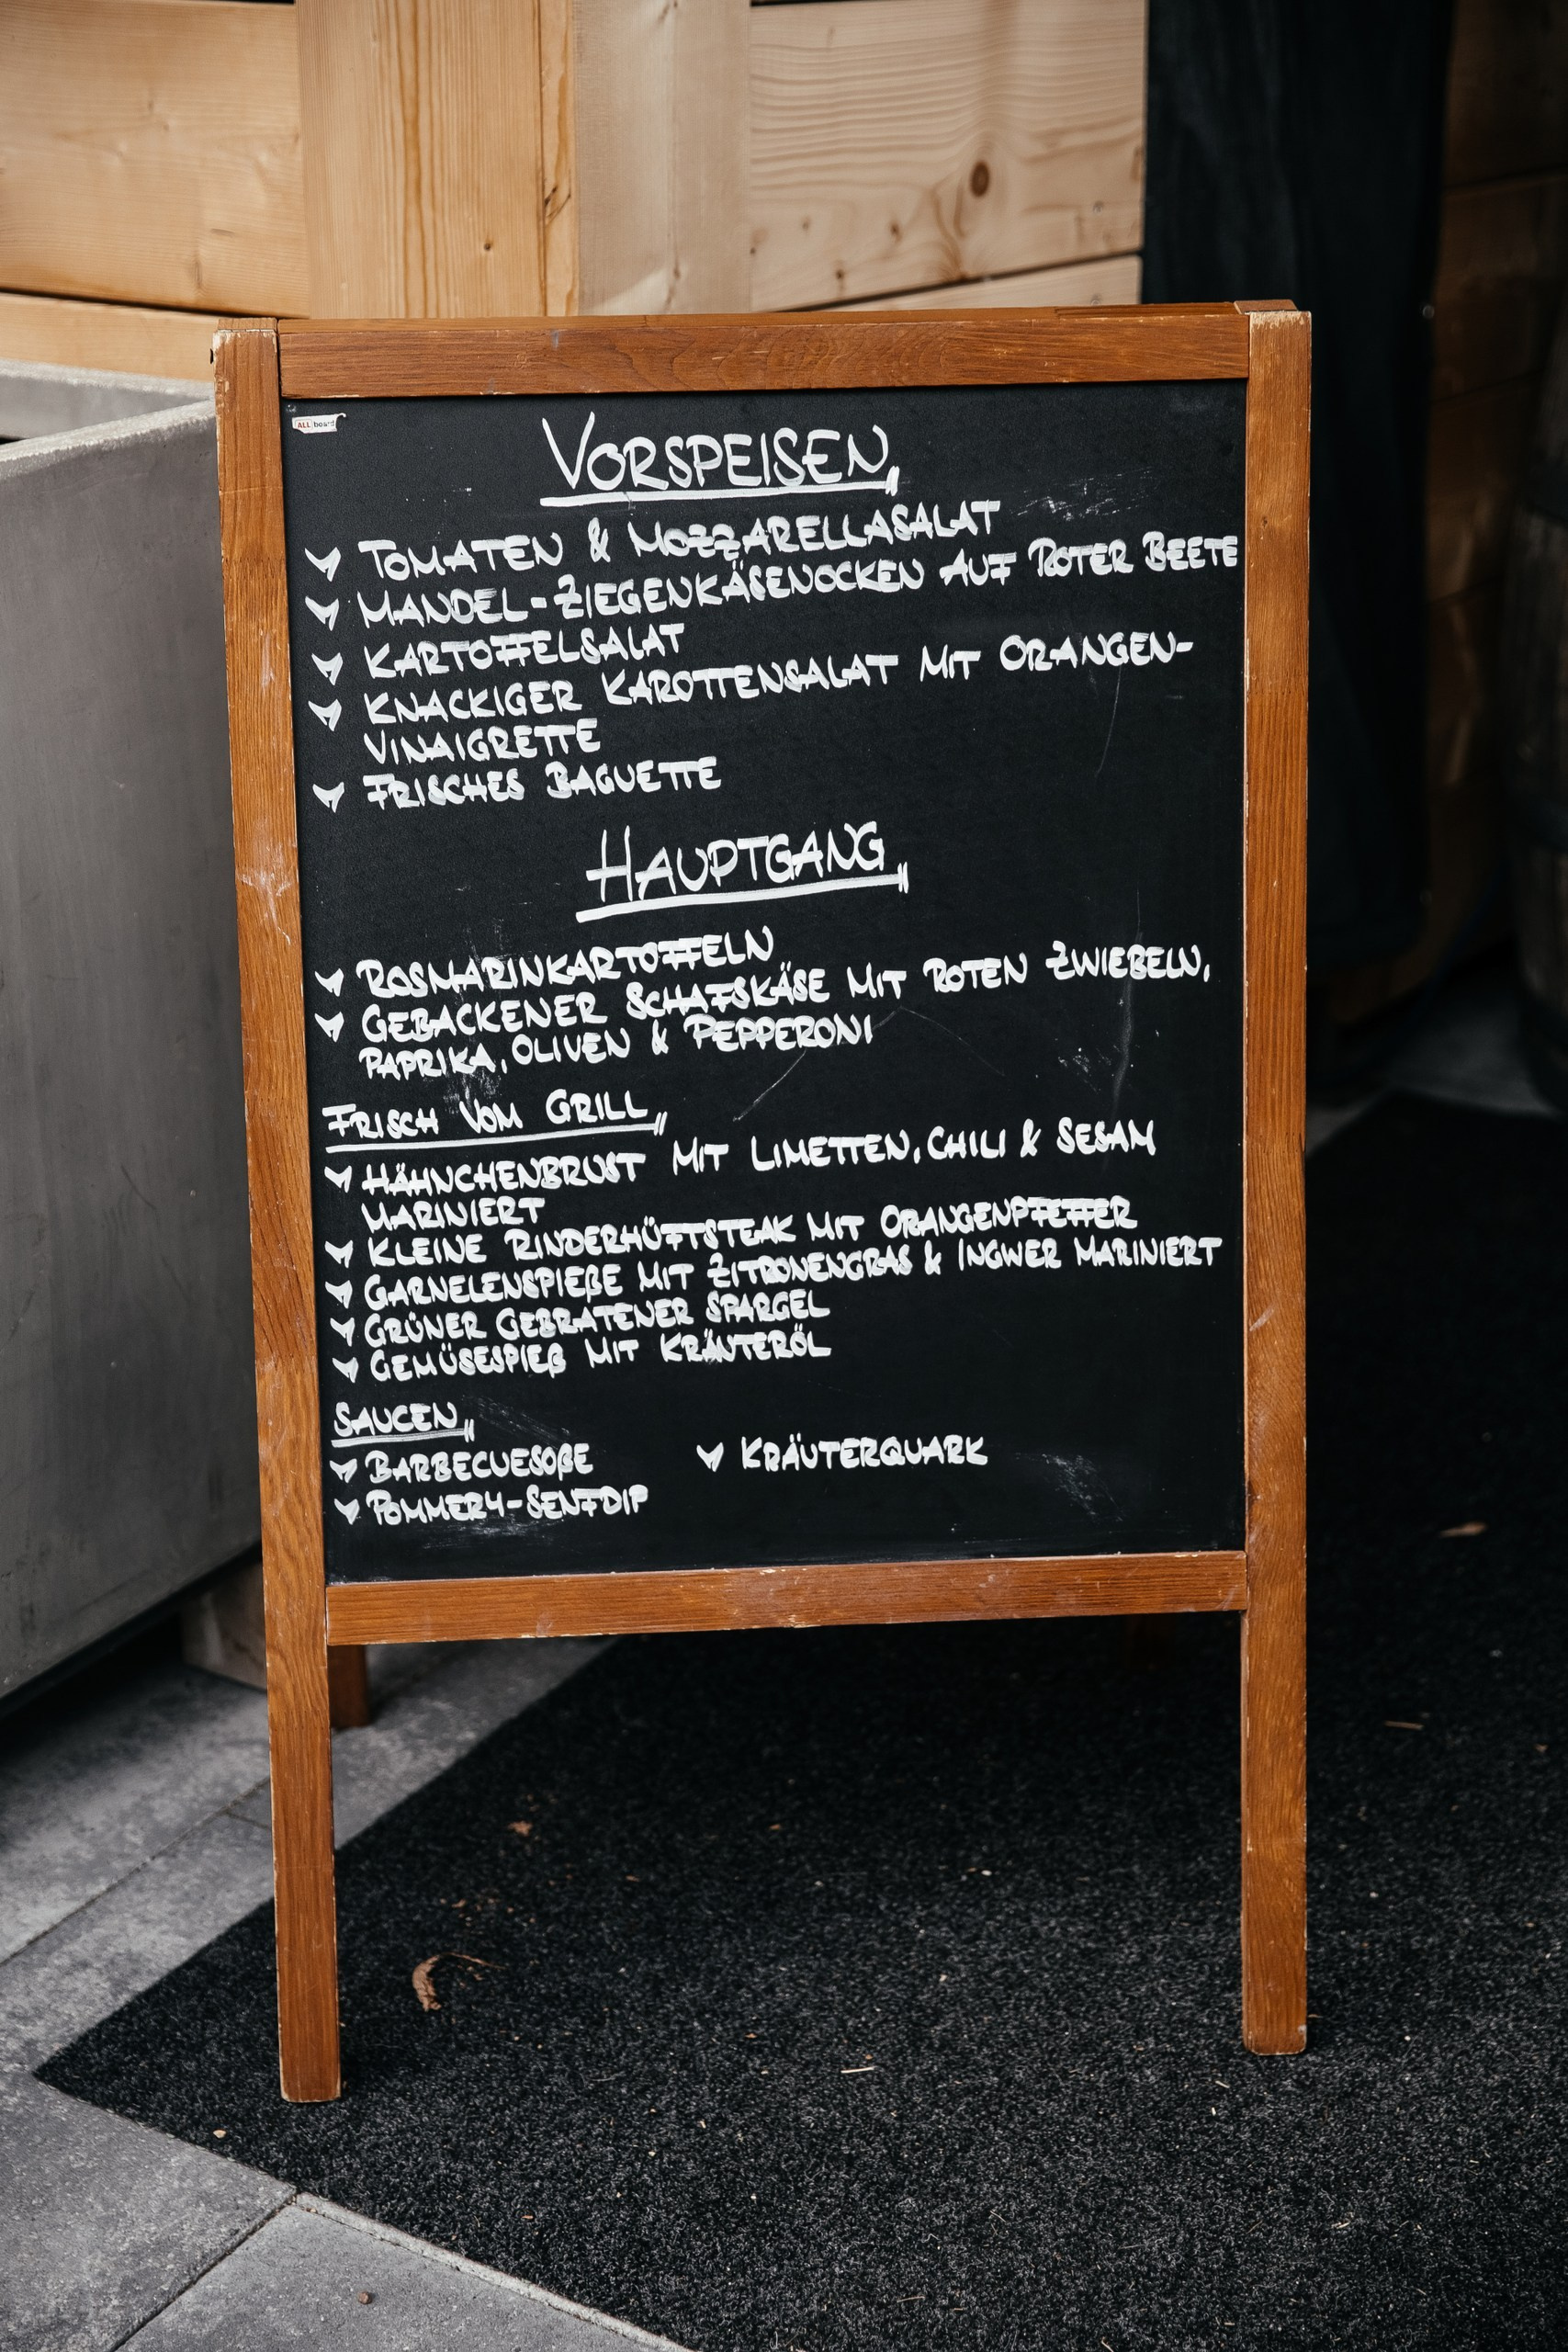 ALL board
VORSPEISEN
TOMATEN & MOZZARELLASALAT
MANDEL-ZIEGENKÄSENOCKEN AUF ROTER BEETE
KARTOFFELSALAT
KNACKIGER KAROTTENSALAT MIT ORANGEN-
VINAIGRETTE
FRISCHES BAGUETTE
HAUPTGANG
ROSMARINKARTOFFELN
GEBACKENER SCHAFSKÄSE MIT ROTEN ZWIEBELN,
PAPRIKA, OLIVEN & PEPPERONI
FRISCH VOM GRILL
HÄHNCHENBRUST MIT LIMETTEN, CHILI & SESAM
MARINIERT
KLEINE RINDERHÜFTSTEAK MIT ORANGENPFEFFER
GARNELENSPIEßE MIT ZITRONENGRAS & INGWER MARINIERT
GRÜNER GEBRATENER SPARGEL
GEMÜSESPIEß MIT KRÄUTERÖL
SAUCEN
BARBECUESOßE KRÄUTERQUARK
POMMERY-SENFDIP